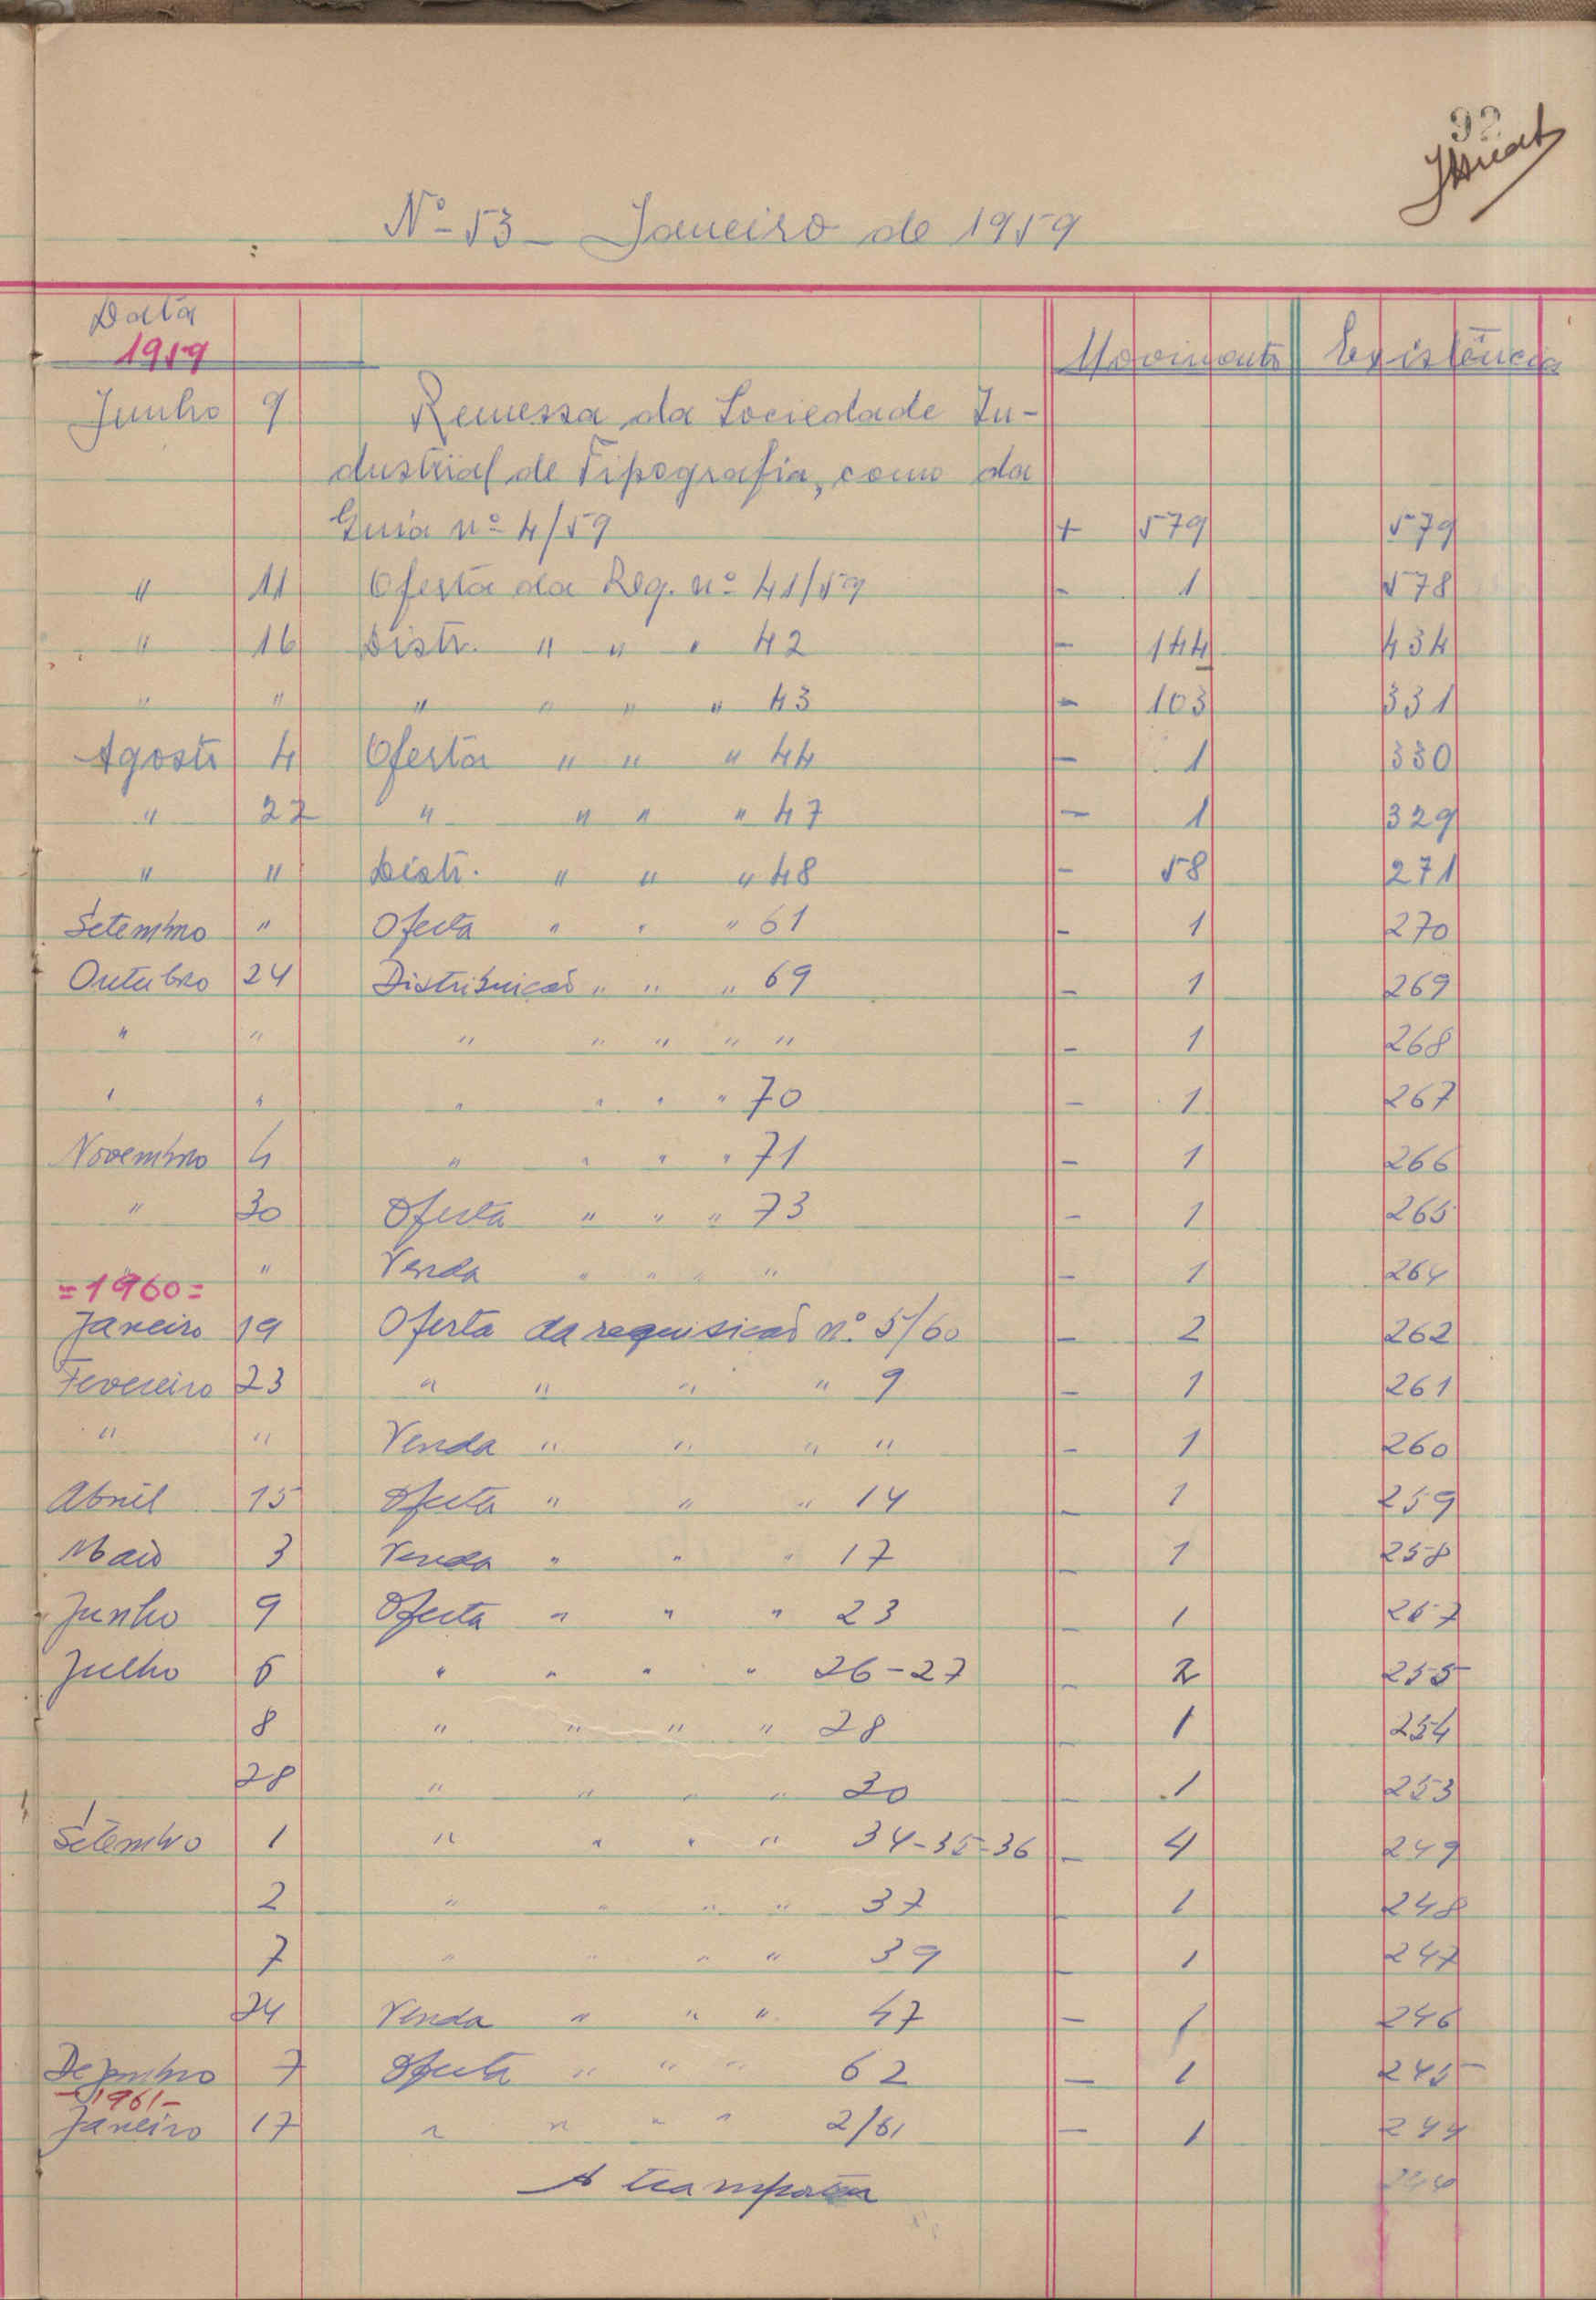 92
Nº-53- Janeiro de 1959
Data
1959
Movimento Existência
Junho 9 Remessa da Sociedade In-
dustrial de Tipografia, como da
Guia nº 4/59 + 579 579
" 11 Oferta da Req. nº 41/59 - 1 578
" 16 Distr. " " " 42 - 144 434
" " " " " " 43 - 103 331
Agosto 4 Oferta " " " 44 - 1 330
" 22 " " " " 47 - 1 329
" " Distr. " " " 48 - 58 271
Setembro " Oferta " " " 61 - 1 270
Outubro 24 Distribuicaõ " " " 69 - 1 269
" " " " " " " - 1 268
" " " " " " 70 - 1 267
Novembro 4 " " " " 71 - 1 266
" 30 Oferta " " " 73 - 1 265
" Venda " " " " - 1 264
=1960=
Janeiro 19 Oferta da requisicaõ nº. 5/60 - 2 262
Fevereiro 23 " " " " 9 - 1 261
" " Venda " " " " - 1 260
Abril 15 Oferta " " " 14 - 1 259
Maio 3 Venda " " " 17 - 1 258
Junho 9 Oferta " " " 23 - 1 257
Julho 6 " " " " 26-27 - 2 255
8 " " " " 28 - 1 254
28 " " " " 30 - 1 253
Setembro 1 " " " " 34-35-36 - 4 249
2 " " " " 37 - 1 248
7 " " " " 39 - 1 247
24 Venda " " " 47 - 1 246
Dezembro 7 Oferta " " " 62 - 1 245
-1961-
Janeiro 17 " " " " 2/61 - 1 244
A transportar 244